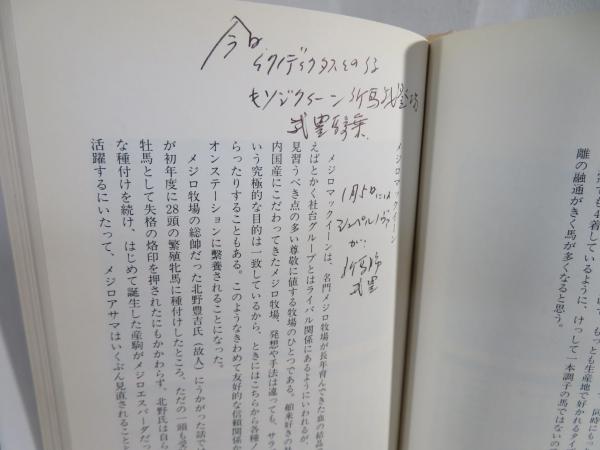 今日
イクノディクタスその
モンジクイーン
武豊騎乗
1月5日には
武豊
離の融通がきく馬が多くなると思う。
ても4着しているように、けっして一本調子の馬ではないので
メジロマックイーン
メジロマックイーンは、名門メジロ牧場が長年育んできた血の結晶
えばとかく社台グループとはライバル関係にあるようにいわれるが、
見習うべき点の多い尊敬に値する牧場のひとつである。顧来好きの
内国産にこだわってきたメジロ牧場。発想や手法は違っても、サラ
いう究極的な目的は一致しているから、ときにはこちらから各種ノ
らったりすることもある。このようなきわめて友好的な信頼関係か
オンステーションに繋養されることになった。
メジロ牧場の総帥だった北野豊吉氏（故人）にうかがった話で
が初年度に28頭の繁殖牝馬に種付けしたところ、ただの一頭も受
牡馬として失格の烙印を押されたにもかかわらず、北野氏は自ら
な種付けを続け、はじめて誕生した産駒がメジロエスパーダだっ
活躍するにいたって、メジロアサマはいくぶん見直されること